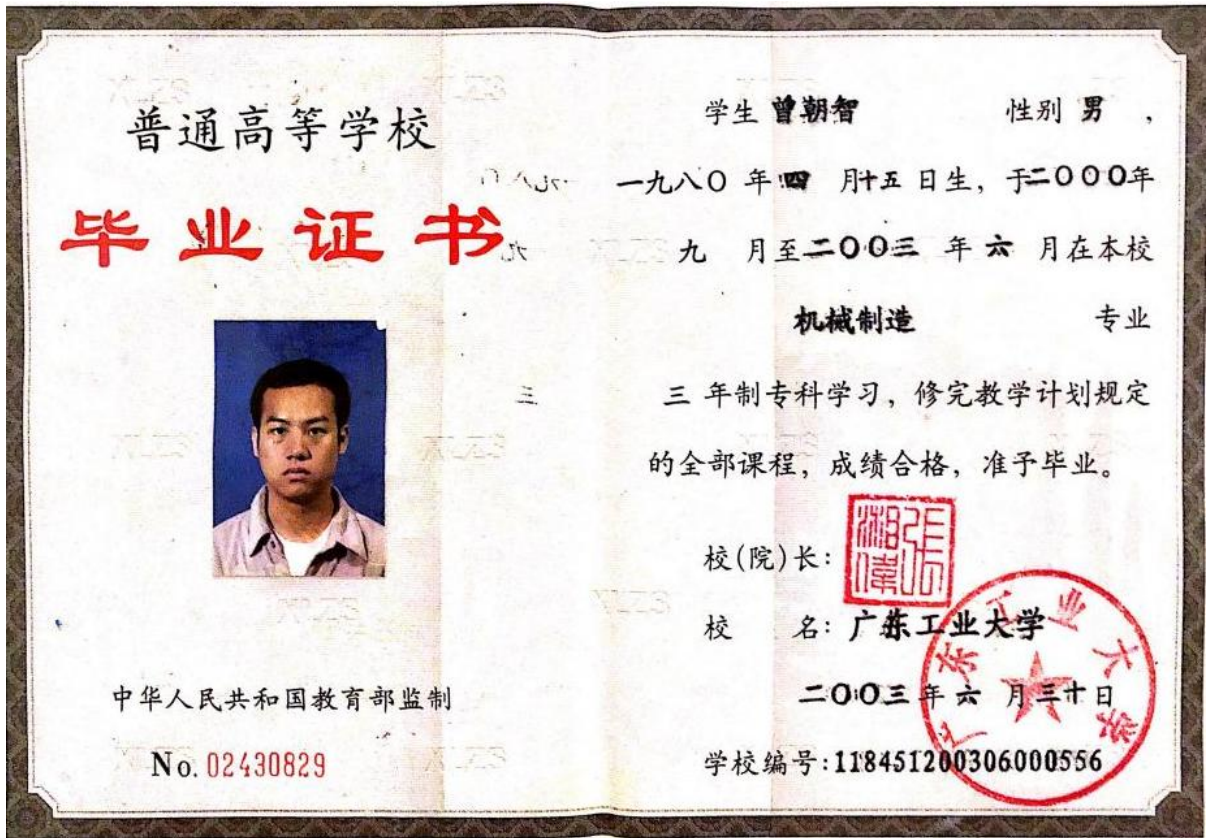 普通高等学校
毕业证书
中华人民共和国教育部监制
No. 02430829
学生 曾朝智 性别 男 ,
一九八〇 年 四 月十五 日生, 于二〇〇〇年
九 月至二〇〇三 年 六 月在本校
机械制造 专业
三 年制专科学习, 修完教学计划规定
的全部课程, 成绩合格, 准予毕业。
校(院)长:
张湘伟
校 名: 广东工业大学
广东工业大学
二〇〇三 年 六 月三十日
学校编号:118451200306000556